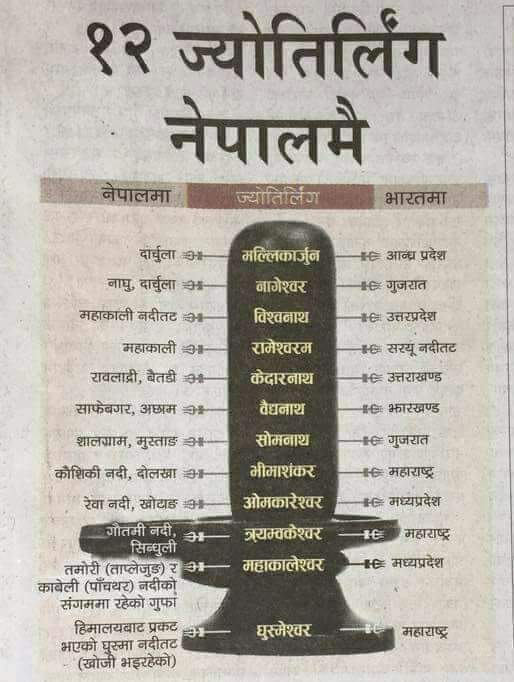 १२ ज्योतिर्लिंग
नेपालमै
नेपालमा ज्योतिर्लिंग भारतमा
दार्चुला मल्लिकार्जुन आन्ध्र प्रदेश
नाघु, दार्चुला नागेश्वर गुजरात
महाकाली नदीतट विश्वनाथ उत्तरप्रदेश
महाकाली रामेश्वरम सरयू नदीतट
रावलाद्री, बैतडी केदारनाथ उत्तराखण्ड
साफेबगर, अछाम वैद्यनाथ झारखण्ड
शालग्राम, मुस्ताङ सोमनाथ गुजरात
कौशिकी नदी, दोलखा भीमाशंकर महाराष्ट्र
रेवा नदी, खोटाङ ओमकारेश्वर मध्यप्रदेश
गोतमी नदी,
सिन्धुली त्र्यम्वकेश्वर महाराष्ट्र
तमोरी (ताप्लेजुङ) र महाकालेश्वर मध्यप्रदेश
काबेली (पाँचथर) नदीको
संगममा रहेको गुफा
हिमालयबाट प्रकट
भएको घुस्मा नदीतट घुस्मेश्वर महाराष्ट्र
(खोजी भइरहेको)